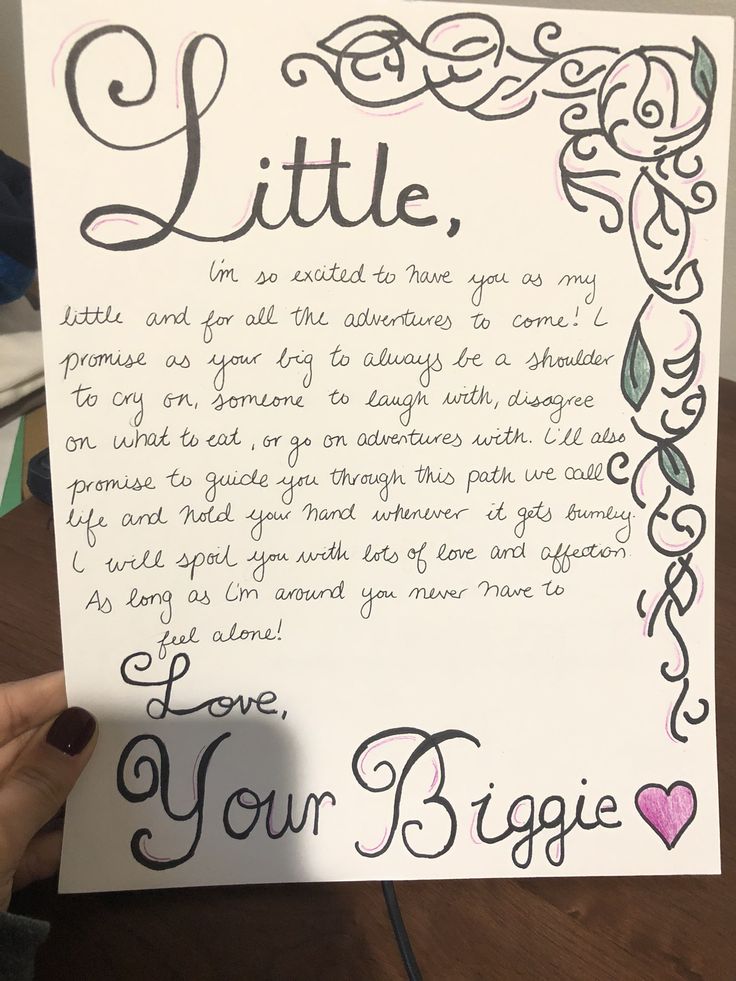 Little,
I'm so excited to have you as my
little and for all the adventures to come! I
promise as your big to always be a shoulder
to cry on, someone to laugh with, disagree
on what to eat, or go on adventures with. I'll also
promise to guide you through this path we call
life and hold your hand whenever it gets bumby.
I will spoil you with lots of love and affection.
As long as I'm around you never have to
feel alone!
Love,
Your Biggie